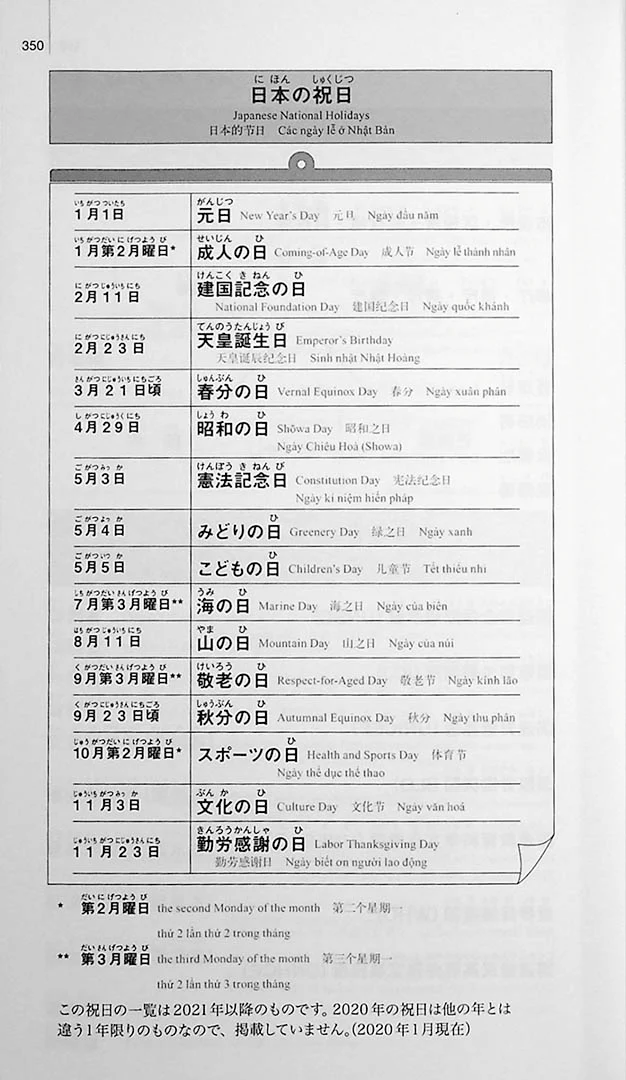 350
に ほん しゅくじつ
日本の祝日
Japanese National Holidays
日本的节日 Các ngày lễ ở Nhật Bản
いちがつ ついたち
1月1日
がんじつ
元日 New Year's Day 元旦 Ngày đầu năm
いちがつだい に げつよう び
1月第2月曜日*
せいじん ひ
成人の日 Coming-of-Age Day 成人节 Ngày lễ thành nhân
に がつ じゅういちにち
2月11日
けんこく き ねん ひ
建国記念の日
National Foundation Day 建国纪念日 Ngày quốc khánh
に がつ にじゅうさんにち
2月23日
てんのうたんじょう び
天皇誕生日 Emperor's Birthday
天皇诞辰纪念日 Sinh nhật Nhật Hoàng
さんがつ にじゅういちにちごろ
3月21日頃
しゅんぶん ひ
春分の日 Vernal Equinox Day 春分 Ngày xuân phân
し がつ にじゅうく にち
4月29日
しょう わ ひ
昭和の日 Shōwa Day 昭和之日
Ngày Chiêu Hoà (Showa)
ご がつ みっ か
5月3日
けんぽう き ねん び
憲法記念日 Constitution Day 宪法纪念日
Ngày kỉ niệm hiến pháp
ご がつ よっ か
5月4日
ひ
みどりの日 Greenery Day 绿之日 Ngày xanh
ご がつ いつ か
5月5日
ひ
こどもの日 Children's Day 儿童节 Tết thiếu nhi
しちがつだい さん げつよう び
7月第3月曜日**
うみ ひ
海の日 Marine Day 海之日 Ngày của biển
はちがつ じゅういちにち
8月11日
やま ひ
山の日 Mountain Day 山之日 Ngày của núi
く がつだい さん げつよう び
9月第3月曜日**
けいろう ひ
敬老の日 Respect-for-Aged Day 敬老节 Ngày kính lão
く がつ にじゅうさんにちごろ
9月23日頃
しゅうぶん ひ
秋分の日 Autumnal Equinox Day 秋分 Ngày thu phân
じゅうがつだい に げつよう び
10月第2月曜日*
ひ
スポーツの日 Health and Sports Day 体育节
Ngày thể dục thể thao
じゅういちがつ みっ か
11月3日
ぶん か ひ
文化の日 Culture Day 文化节 Ngày văn hoá
じゅういちがつ にじゅうさんにち
11月23日
きんろうかんしゃ ひ
勤労感謝の日 Labor Thanksgiving Day
勤劳感谢日 Ngày biết ơn người lao động
だい に げつよう び
* 第2月曜日 the second Monday of the month 第二个星期一
thứ 2 lần thứ 2 trong tháng
だい さん げつよう び
** 第3月曜日 the third Monday of the month 第三个星期一
thứ 2 lần thứ 3 trong tháng
この祝日の一覧は2021年以降のものです。2020年の祝日は他の年とは
違う1年限りのものなので、掲載していません。(2020年1月現在)